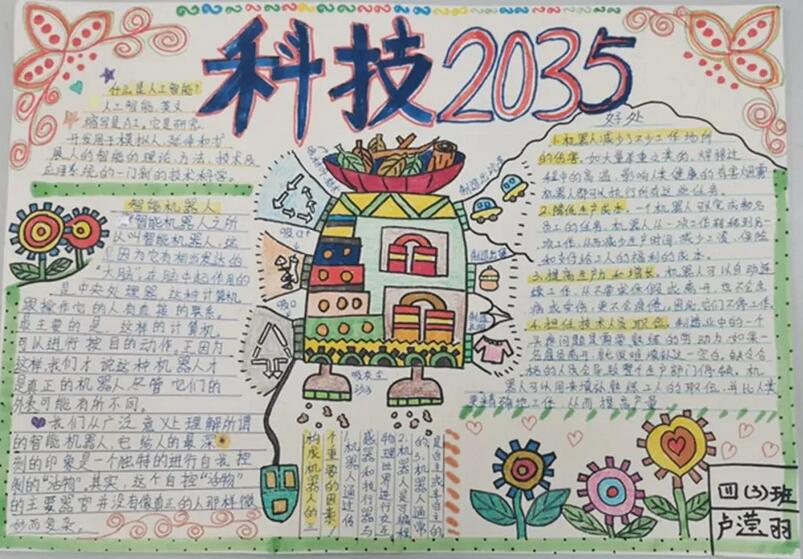 科技2035
什么是人工智能?
人工智能,英文
缩写是AI。它是研究、
开发用于模拟、延伸和扩
展人的智能的理论、方法、技术及
应用系统的一门新的技术科学。
智能机器人
智能机器人之所
以叫智能机器人,这
是因为它有相当发达的
“大脑”。在脑中起作用的
是中央处理器,这种计算机
跟操作它的人有直接的联系。
最主要的是,这样的计算机
可以进行按目的动作。正因为
这样,我们才说这种机器人才
是真正的机器人,尽管它们的
外表可能有所不同。
我们从广泛意义上理解所谓
的智能机器人,它给人的最深
刻的印象是一个独特的进行自我控
制的“活物”。其实,这个自控“活物”
的主要器官并没有像真正的人那样微
妙而复杂。
吸口
吸口
制造出
吸灰尘
沙子
好处
1.机器人减少了不少工作场所
的伤害。如大量举重之类的,焊接过
程中的高温,影响人类健康的有害烟雾
机器人都可执行所有这些任务。
2.降低生产成本。一个机器人可完成数名
员工的任务。机器人从一项工作转移到另一
项工作,从而减少生产时间,减少工资、保险
和支付给工人的福利的成本。
3.提高生产力和增长。机器人可以自动连
续工作,从不要求休假或离开,也不会生
病或受伤,更不会疲倦,因此它们不停工作
4.担任技术人员职位。制造业中的一个
头疼问题是需要熟练的劳动力,如果一
名雇员离开,就很难填补这一空白,缺乏合
格的人员会导致整个生产部门停顿。机
器人可以用来填补熟练工人的职位,并比人类
更精确地工作,从而提高产量。
构成机器人的三
个重要的因素:
1.机器人通过传
感器和执行器与
物理世界进行交互
2.机器人是可编程
的。3.机器人通常
是自主或半自主的
四(3)班
卢滢羽